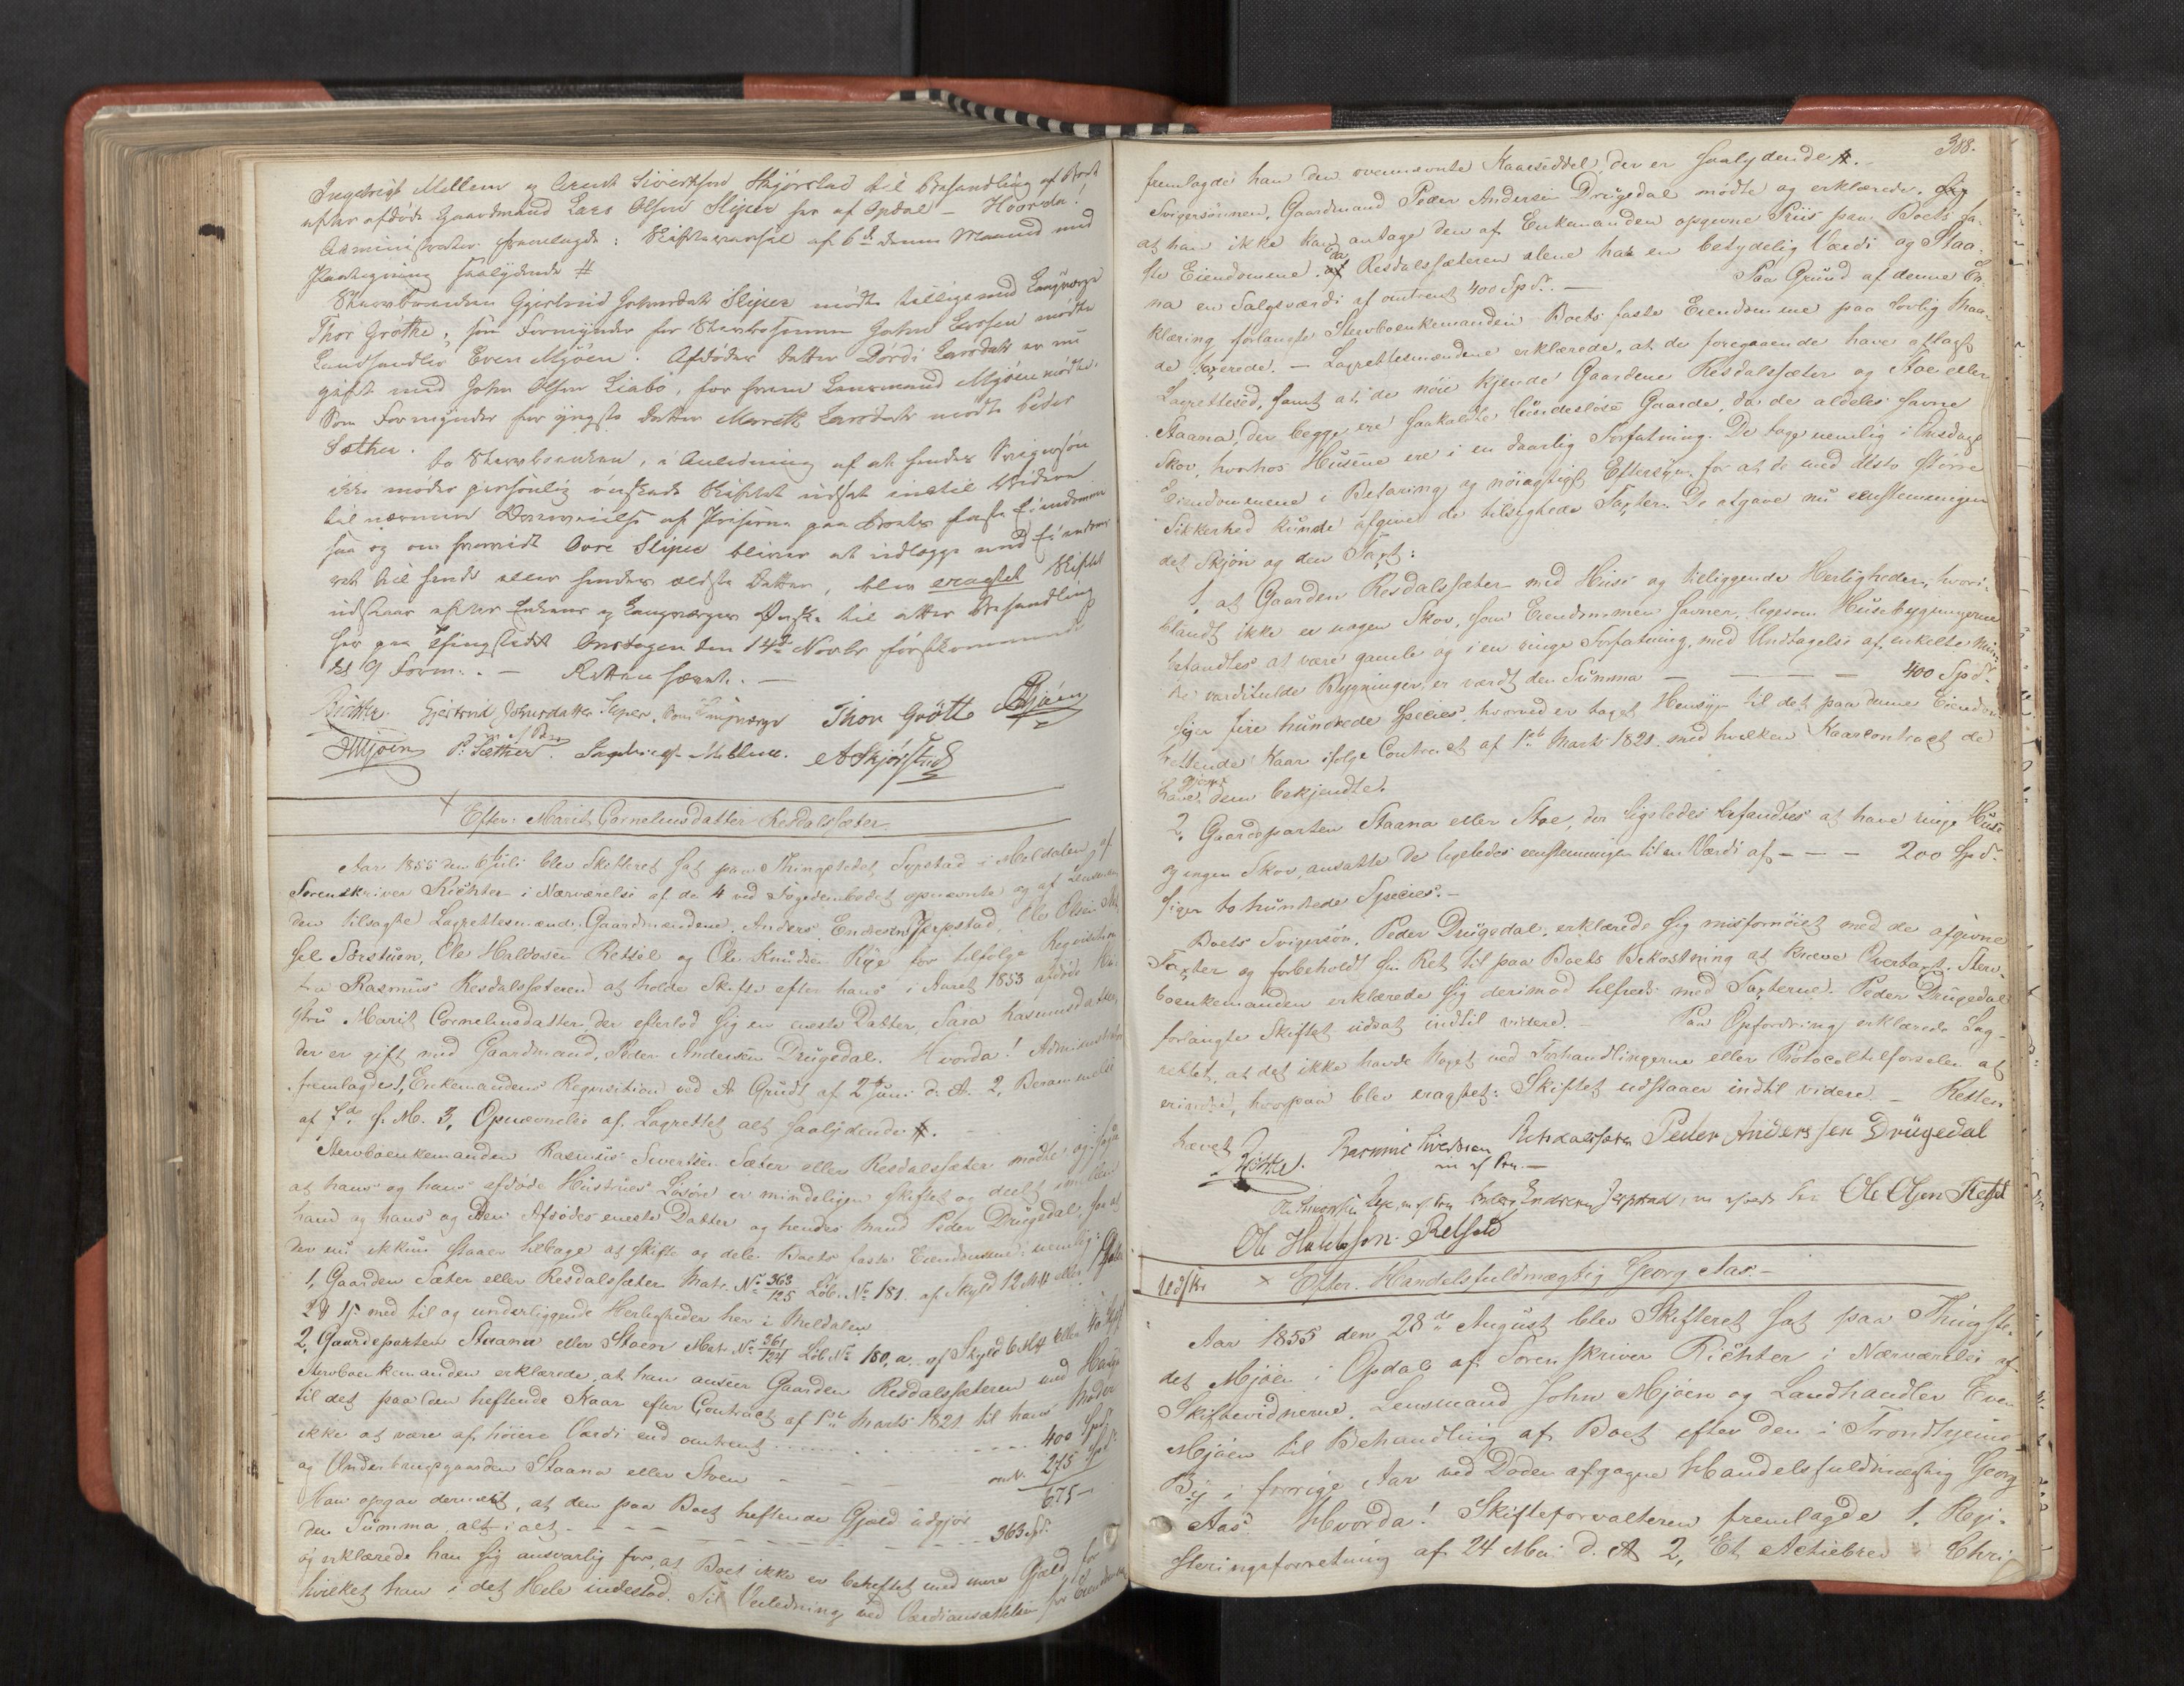 Ingebrigt Mellem og Arent Siverthsen Skjørstad til Behandling af Boet
efter afdøde Gaardmand Lars Olsen Sliper her af Opdal – Hvorda!
Administrator fremlagde: Skiftevarsel af 6te denne Maaned med
Paategning saalydende #
Stervboenken Gjertrud Johnsdatr Sliper mødte tilligemed Laugværge
Thor Grøtte, som Formynder for Stervbosønnen John Larssen mødte
Landhandler Even Mjøen. Afdødes Datter Dordi Larsdatr er nu
gift med John Olsen Liabø, for hvem Lensmand Mjøen mødte.
Som Formynder for yngste Datter Marith Larsdatr mødte Peder
Sæther.
Da Stervboenken, i Anledning af at hendes Svigersøn
ikke møder personlig ønskede Skiftet udsat indtil Videre
til nærmere Overveielse af Priserne paa Boets faste Eiendomme
saa og om hvorvidt Øvre Sliper bliver at udlægge med Eiendoms
ret til hende eller hendes ældste Datter, blev eragtet Skiftet
udstaar efter Enkens og Laugværges Ønske til atter Behandling
her paa Thingstedet Onsdagen den 14de Novbr førstkommende
Kl 9 Form. – Retten hævet. –
Richter. Gjertrud Johnsdatter Sliper, som Laugværge Thor Grøtte EMjøen
JMjøen P. Sæther. Ingebrigt Mellem. A Skjørstad
+ Efter Marit Cornelinsdatter Resdalssæter.
Aar 1855 den 6 Juli blev Skifteret sat paa Thingstedet Syrstad i Meldalen, af
Sorenskriver Richter i Nærværelse af de 4 ved Fogedembedet opnævnte og af Lensman
den tilsagte Lagrettesmænd, Gaardmændene, Anders Endresen Jerpstad, Ole Olsen Ret
sel Sørstuen, Ole Haldosen Retsel og Ole Knudsen Rye for tilfølge Reqvisition
fra Rasmus Resdalssæteren at holde Skifte efter hans i Aaret 1853 afdøde Hu-
stru Marit Cornelinsdatter, der efterlod sig en eneste Datter, Sara Rasmusdatter,
der er gift med Gaardmand, Peder Andersen Drugedal. Hvorda! Administrator
fremlagde 1, Enkemandens Reqvisition ved A Grudt af 2 Juni d. A. 2, Berammelse
af 7de s. M. 3, Opnævnelse af Lagrettet alt saalydende #.
Stervboenkemanden Rasmus Sivertsen Sæter eller Resdalssæter mødte og
at hans og hans afdøde Hustrues Løsøre er mindeligen skiftet og deelt imellem
ham og hans og den Afdødes eneste Datter og hendes Mand Peder Drugedal, saa at
der nu ikkun staaer tilbage at skifte og dele Boets faste Eiendomme nemlig:
1, Gaarden Sæter eller Resdalssæter Matr. No 363/125 Løb. No 181. af Skyld 12 eller
2 med til og underliggende Herligheder her i Meldalen
2, Gaardeparten Staana eller Stoen Matr. No 361/124 Løb No 180, a. af Skyld 6 eller
Stervboenkemanden erklærede, at han anseer Gaarden Resdalssæteren med Hensyn
til det paa den heftende Kaar efter Contract af 1ste Marts 1821 til hans Moder
ikke at være af høiere Værdi end omtrent . . . . . . 400 Spd.
og Underbrugsgaarden Staana eller Stoen – – – omtr. 275 Spd.
675 –
Han opgav dernæst, at den paa Boet heftende Gjæld udgjør
den Summa alt i alt – – – – – – – 363 Spd.
og erklærede han sig ansvarlig for, at Boet ikke er beheftet med mere Gjæld, for
hvilket han i det Hele indestod. Til Veiledning ved Værdiansættelsen for Eiendommen
388.
fremlagde han den ovennævnte Kaarseddel, der er saalydende #.
Svigersønnen, Gaardmand Peder Andersen Drugedal mødte og erklærede,
at han ikke kan antage den af Enkemanden opgivne Priis paa Boets fa-
ste Eiendomme, da Resdalssæteren alene har en betydelig Værdi og Staa-
na en Salgsværdi af omtrent 400 Spd. – Paa Grund af denne Er-
klæring forlangte Stervboenkemanden Boets faste Eiendomme paa lovlig Maa-
de taxerede. – Lagrettesmændene erklærede, at de foregaaende have aflagt
Lagrettesed, samt at de nøie kjende Gaardene Resdalssæter og Stoe eller
Staana, der begge ere saakaldte lundesløse Gaarde, da de aldeles savne
Skov, hvorhos Husene ere i en daarlig Forfatning. De toge nemlig i Onsdags
Eiendommene i Befaring og nøiagtigt Eftersyn, for at de med desto større
Sikkerhed kunde afgive de tilsigtede Taxter. De afgave nu eenstemmigen
det Skjøn og den Taxt:
1, at Gaarden Resdalssæter med Huse og tilliggende Herligheder, hvori-
blandt ikke er nogen Skov, som Eiendommen savner, ligesom Husebygningerne
befandtes at være gamle og i en ringe Forfatning, med Undtagelse af enkelte min-
dre værdifulde Bygninger, er værdt den Summa – – – – 400 Spd.
siger fire hundrede Species, hvorved er taget Hensyn til det paa denne Eiendom
heftende Kaar ifølge Contract af 1ste Marts 1821. med hvilken Kaarcontract de
have gjort dem bekjendte.
2, Gaardsparten Staana eller Stoe, der ligeledes befandtes at have ringe Huse
og ingen Skov, ansatte de ligeledes eenstemmigen til en Værdi af – – – 200 Spd.
siger to hundrede Species. –
Boets Svigersøn, Peder Drugedal, erklærede sig misfornøiet med de afgivne
Taxter og forbeholdt sin Ret til paa Boets Bekostning at kræve Overtaxt. Sterv-
boenkemanden erklærede sig derimod tilfreds med Taxterne. Peder Drugedal
forlangte Skiftet udsat indtil videre. – Paa Opfordring erklærede Lag-
rettet, at det ikke havde Noget ved Forhandlingerne eller Protocoltilførselen at
erindre, hvorpaa blev eragtet: Skiftet udstaaer indtil videre. – Retten
hævet
Richter. Rasmus Sivertsen Resdalssæter Peder Anderssen Drügedal
m. p. P. –
Ole Knudsen Rye, m. p. P. Anders Endresen Jerpstad, Ole Olsen Retsel
Ole Haldosson Retsel
Udskr. × Efter Handelsfuldmægtig Georg Aas. –
Aar 1855 den 28de August blev Skifteret sat paa Thingste-
det Mjøen i Opdal af Sorenskriver Richter i Nærværelse af
Skiftevidnerne Lensmand John Mjøen og Landhandler Even
Mjøen til Behandling af Boet efter den i Trondhjems
By i forrige Aar ved Døden afgagne Handelsfuldmægtig Georg
Aas. Hvorda! Skifteforvalteren fremlagde 1, Regi-
streringsforretning af 24 Mai d. A 2, Et Actiebrev Chri